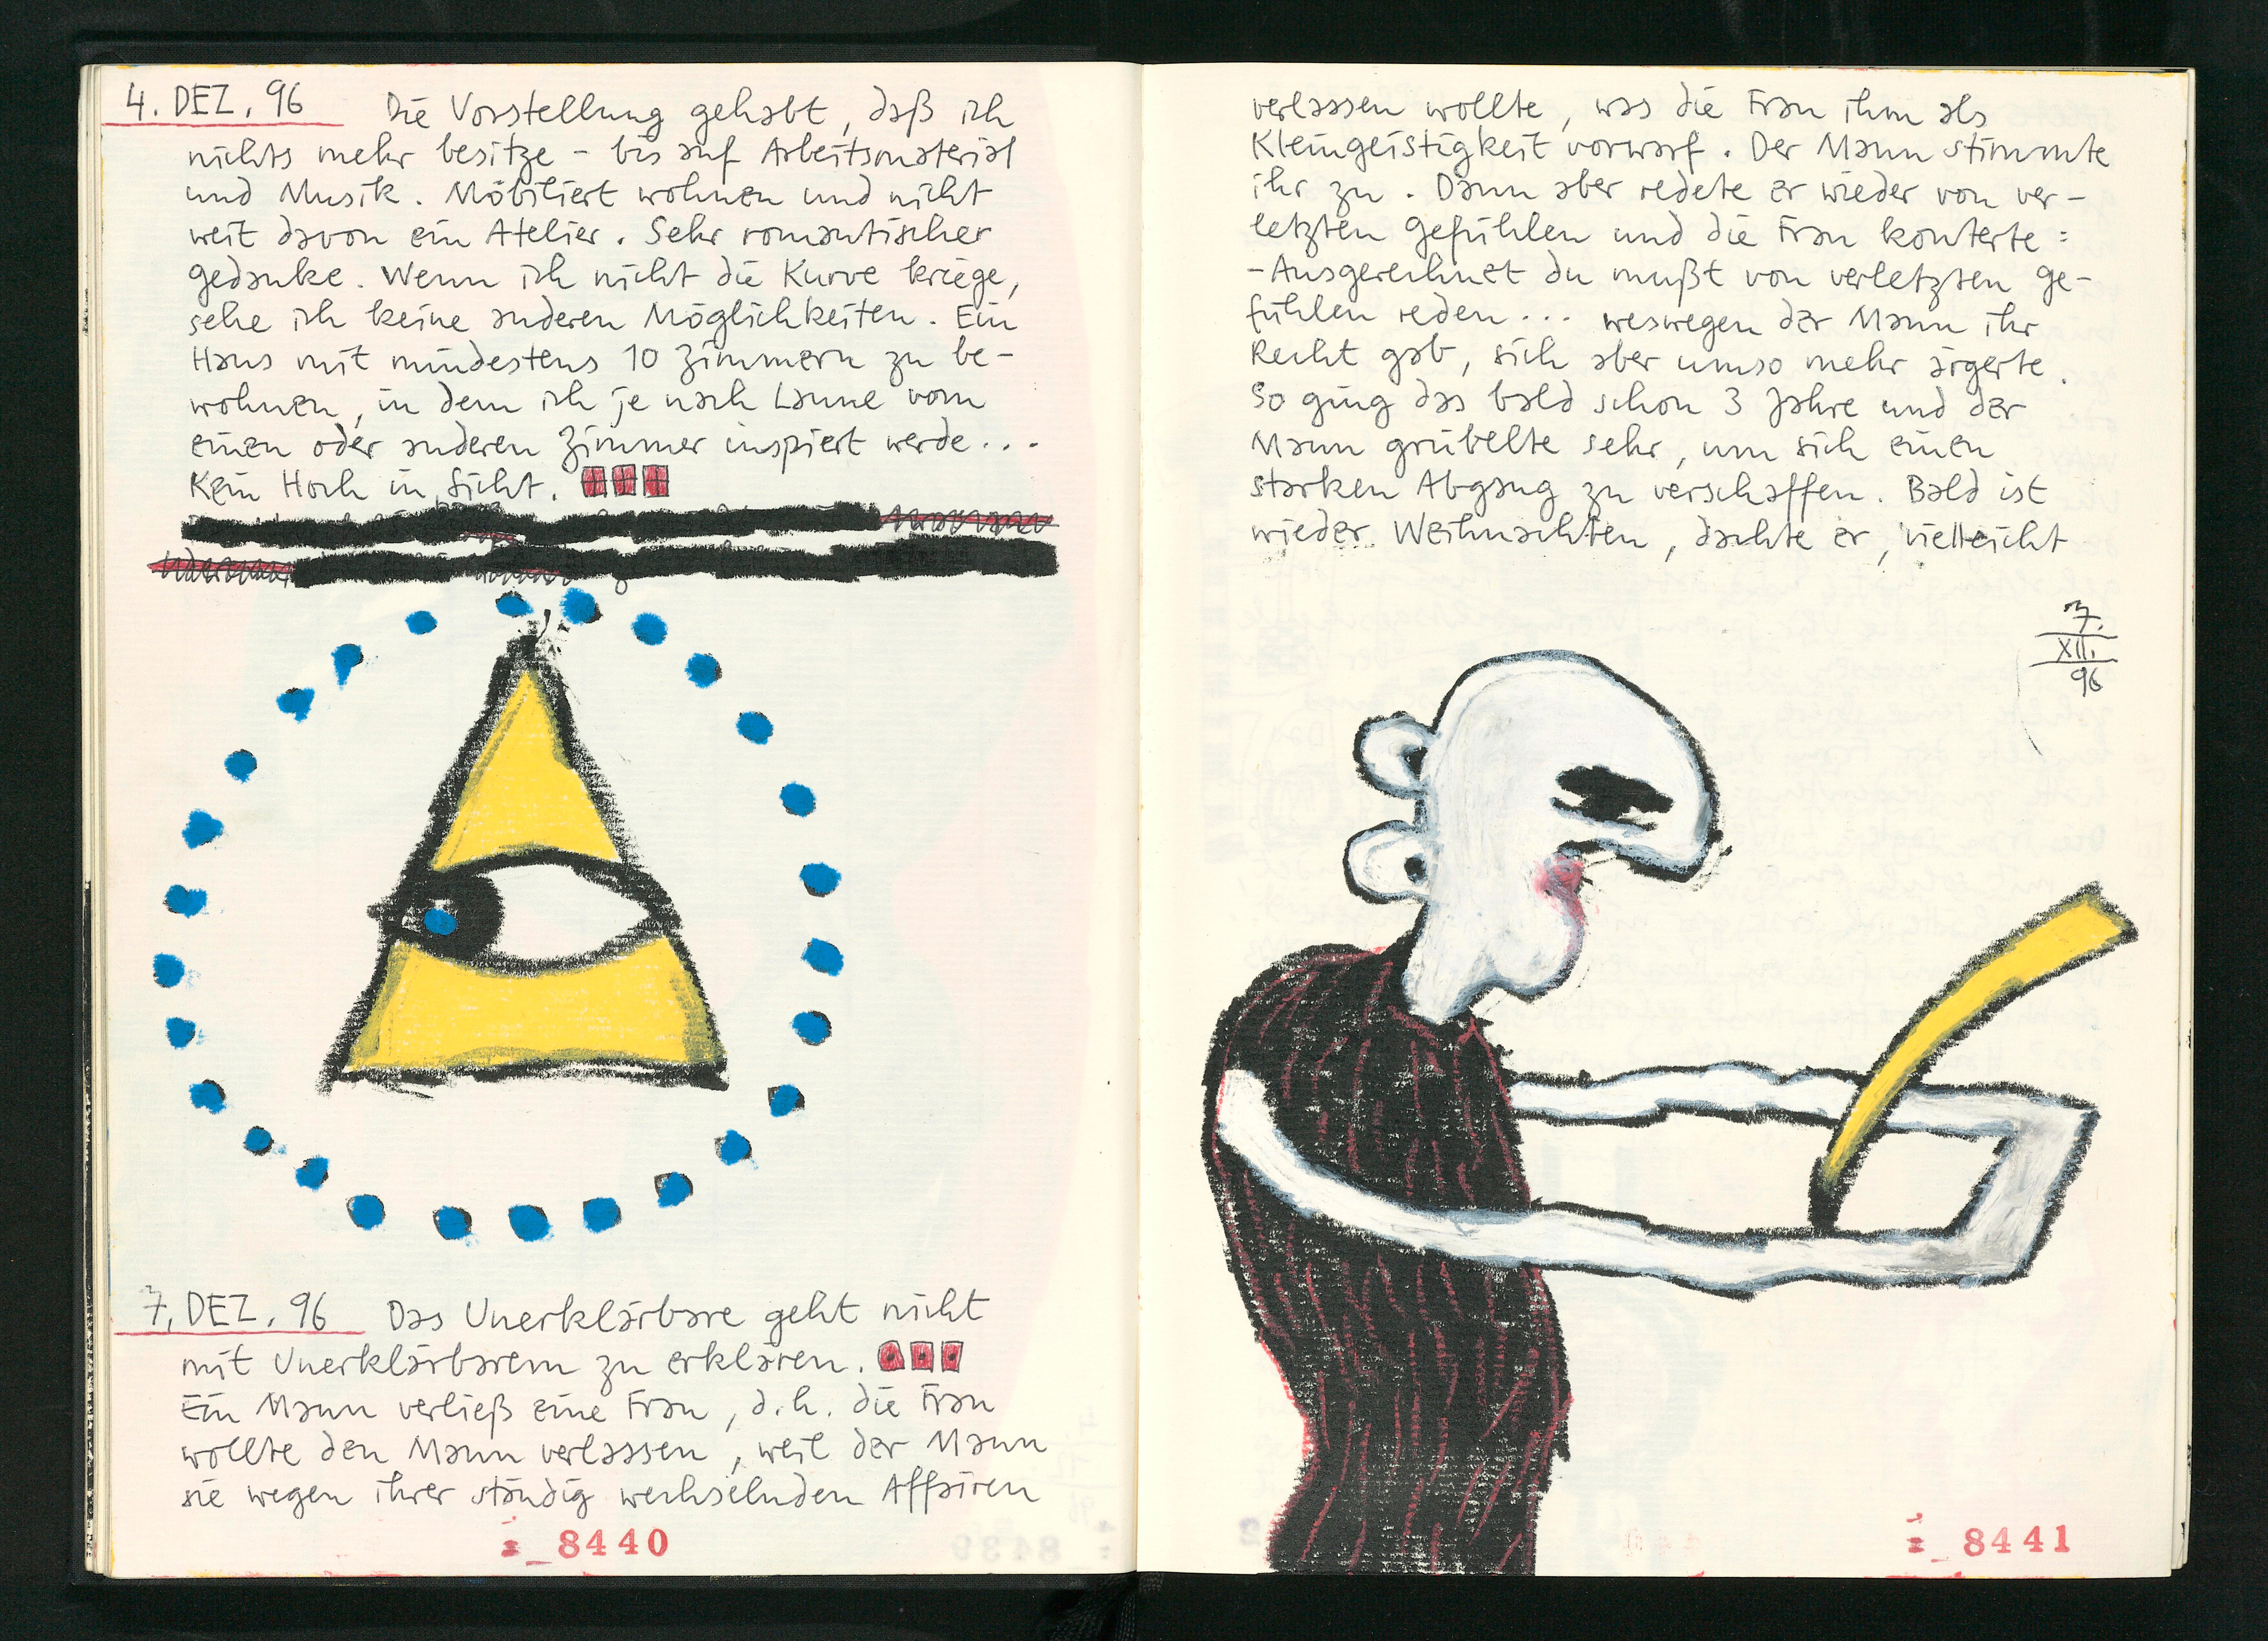 4. DEZ. 96 Die Vorstellung gehabt, daß ich
nichts mehr besitze - bis auf Arbeitsmaterial
und Musik. Möbiliert wohnen und nicht
weit davon ein Atelier. Sehr romantischer
Gedanke. Wenn ich nicht die Kurve kriege,
sehe ich keine anderen Möglichkeiten. Ein
Haus mit mindestens 10 Zimmern zu be-
wohnen, in dem ich je nach Laune vom
einen oder anderen Zimmer inspiert werde...
Kein Hoch in Sicht.
7. DEZ. 96 Das Unerklärbare geht nicht
mit Unerklärbarem zu erklären.
Ein Mann verließ eine Frau, d.h. die Frau
wollte den Mann verlassen, weil der Mann
sie wegen ihrer ständig wechselnden Affairen
8440
verlassen wollte, was die Frau ihm als
Kleingeistigkeit vorwarf. Der Mann stimmte
ihr zu. Dann aber redete er wieder von ver-
letzten Gefühlen und die Frau konterte:
-Ausgerechnet du mußt von verletzten Ge-
fühlen reden... weswegen der Mann ihr
Recht gab, sich aber umso mehr ärgerte.
So ging das bald schon 3 Jahre und der
Mann grübelte sehr, um sich einen
starken Abgang zu verschaffen. Bald ist
wieder Weihnachten, dachte er, vielleicht
7.
XII.
96
8441